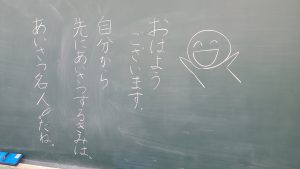 おはよう
ございます。
自分から
先にあいさつするきみは、
あいさつ名人!だね。